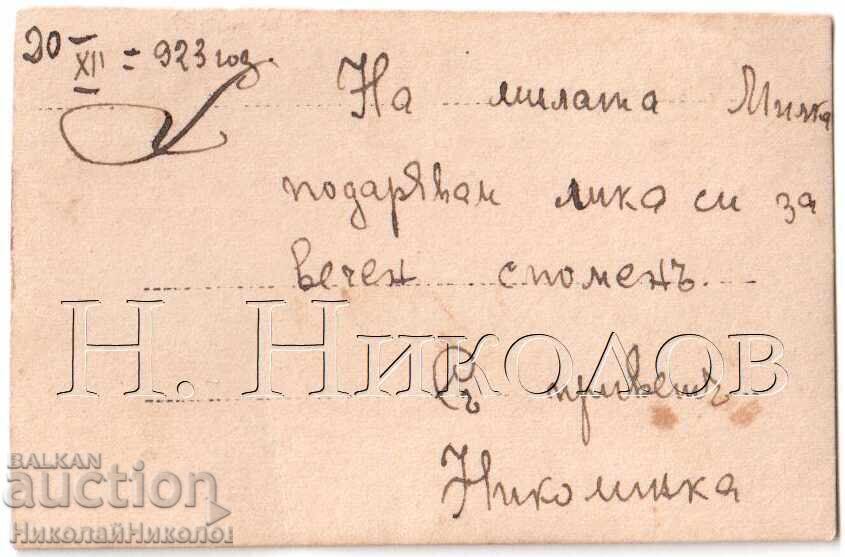 20 XII = 923 год.
На милата Милка
подарявам лика си за
вечен споменъ.
Съ приветъ
Никоминка
Н. Николов
BALKAN
auction
НиколайНиколов